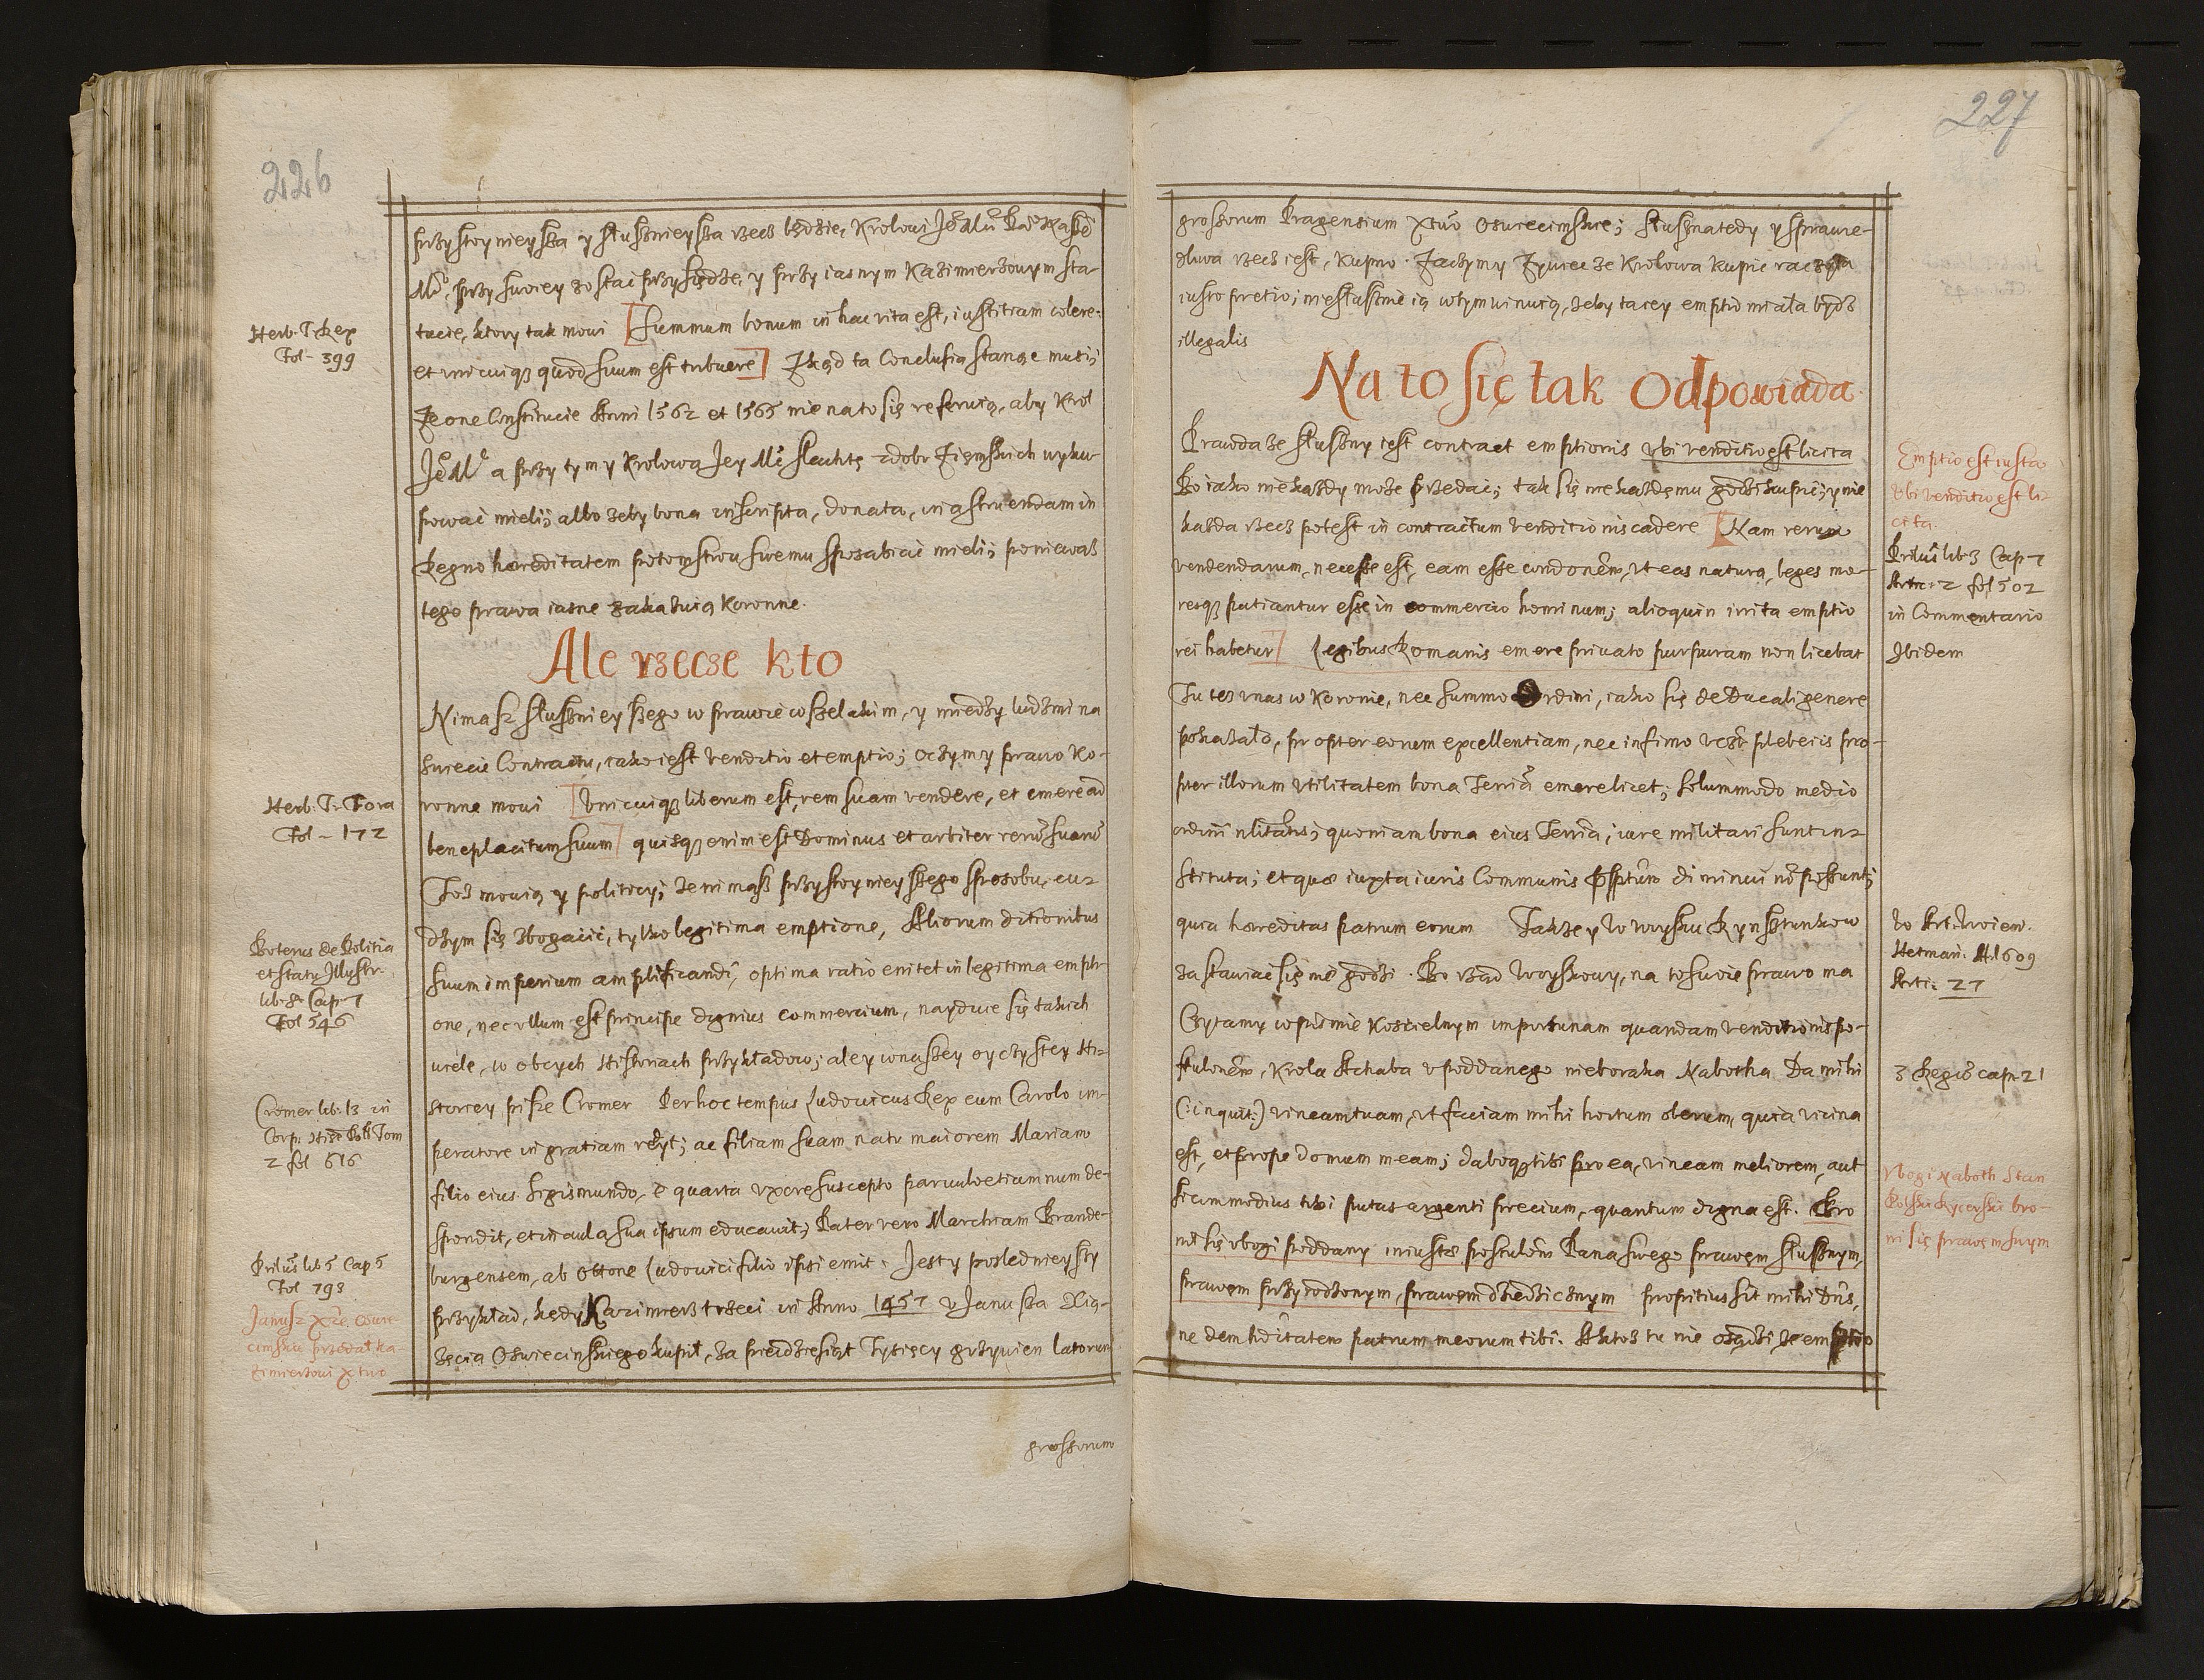 226
przystoynieyszą y słusznieysza rzecz będzie, Krolowi Je° Mci Panu Naszeo
Mu, przy swoiey zostać przysiędze, y przy iasnym Kazimierzowym sta-
tucie, ktory tak mowi [Summum bonum in hac vita est, iustitiam colere:
et unicuiq3 quod suum est tribuere] Zkąd ta Conclusia stanąć musi;
Ze one Constitucie Anni 1562 et 1565 nie na to się referuią, aby Krol
Je° Mc a przy tym y Krolowa Jey Mc slachtę z dobr Ziemskich wyku-
pować mieli; albo zeby bona inscripta, donata, in astruendam in
Regno hæreditatem potomstwu swemu sposabiać mieli; poniewasz
tego prawa iasne zakazuią Koronne.
Ale rzecze kto
Nimasz słuszniey szego w prawie wszelakim, y miedzy ludzmi na
swiecie Contractu, iako iest venditio et emptio; o czym y prawo Ko-
ronne mowi [Vnicuiq3 liberum est, rem suam vendere, et emere ad
beneplacitum suum] quisq3 enim est Dominus et arbiter rerum suarum
Toz mowią y politicy; ze nimasz przystoynieyszego sposobu, cu-
dzym się zbogacić, tylko legitima emptione, Aliorum ditionibus
suum imperium amplificandi, optima ratio enitet in legitima empti-
one, nec ullum est principe dignius commercium, nayduie się takich
wiele, w obcych Historiach przykładow; ale y w naszey oyczystey Hi-
storiey pisze Cromer Per hoc tempus Ludovicus Rex cum Carolo im-
peratore in gratiam redyt; ac filiam suam natu maiorem Mariam
filio eius Sigismundo, è quarta uxore suscepto parvulo etiamnum de-
spondit, et in aula sua ipsum educavit; Pater vero Marchiam Brande-
burgensem, ab Ottone Ludovici filio ipsi emit. Jest y poslednieyszy
przykład, kędy Kazimierz trzeci in Anno 1457 v Janusza Xią-
zęcia Oswiecinskiego kupił, za piendziesiąt Tysięcy grzywien latorum
grossorum
Herb: T. Rex
Fol - 399
Herb: T. Fora
Fol - 172
Boterus de Politia
et statu Illustr.
lib. 8 Cap. 7
Fol 546
Cromer lib: 13 in
Corp: Hist Pol: Tom
2 fol 616
Prilus lib 5 Cap 5
Fol 793
Janusz Xże Oswie
cimskie przedał Ka
zimierzowi Xtwo
227
grossorum Pragensium Xtwo Oswiecimskie; słusznatedy y sprawie-
dliwa rzecz iest, kupno. Zaczym y Zywiec ze Krolowa kupić raczyła
iusto pretio; niesłusznie ią w tym winuią, zeby tacey emptio miała bydz
illegalis
Na to się tak Odpowiada
Prawda ze słuszny iest contract emptionis ubi venditio est licita
Bo iako nie kazdy moze przedać; tak się nie kazdemu godzi kupić; y nie
kazda rzecz potest in contractum venditionis cadere [Nam rerum
vendendarum, necesse est, eam esse condonem, vt eas natura, leges mo-
resq3 patiantur esse in commercio hominum; alioquin irrita emptio
rei habetur] Legibus Romanis emere privato purpuram non licebat
Tu tez u nas w Koronie, nec summo ordini, iako się de Ducali genere
pokazało, propter eorum excellentiam, nec infimo vczt plebeis pro-
pter illorum vtilitatem bona Terria emere licet; solummodo medio
ordini nlitatis; quoniam bona eius Terria; iure militari sunt in-
stituta; et quæ iuxta iuris Communis psptum diminui no possunt;
quia hæreditas patrum eorum Takze y w woysku Rynsztunkow
zastawiać się nie godzi. Bo vrząd Woyskowy, na to swoie prawo ma
Czytamy w pismie Koscielnym importunam quandam venditionis po-
stulonem, Krola Achaba v poddanego nieboraka Nabotha Da mihi
(:inquit:) vineam tuam, vt faciam mihi hortum olerum, quia vicina
est, et prope domum meam; daboq3 tibi pro ea, vineam meliorem, aut
si commodius tibi putas argenti precium, quantum digna est. Bro
ni się vbogi poddany iniustæ postulom Pana swego prawem słusznym,
prawem przyrodzonym, prawem dziedzicznym propitius sit mihi Dns,
ne dem hditatem patrum meorum tibi. Aktoz tu nie osądzi ze emptio
Emptio est iusta
vbi venditio est li-
cita.
Prilus lib 3 Cap 7
Artic: 2 fol 502
in Commentario
Ibidem
W Art: Woien.
Hetmań: A. 1609
Arti: 27
3 Regu cap. 21
Vbogi Naboth Stan
Polski Rycerski bro-
ni się prawem swym